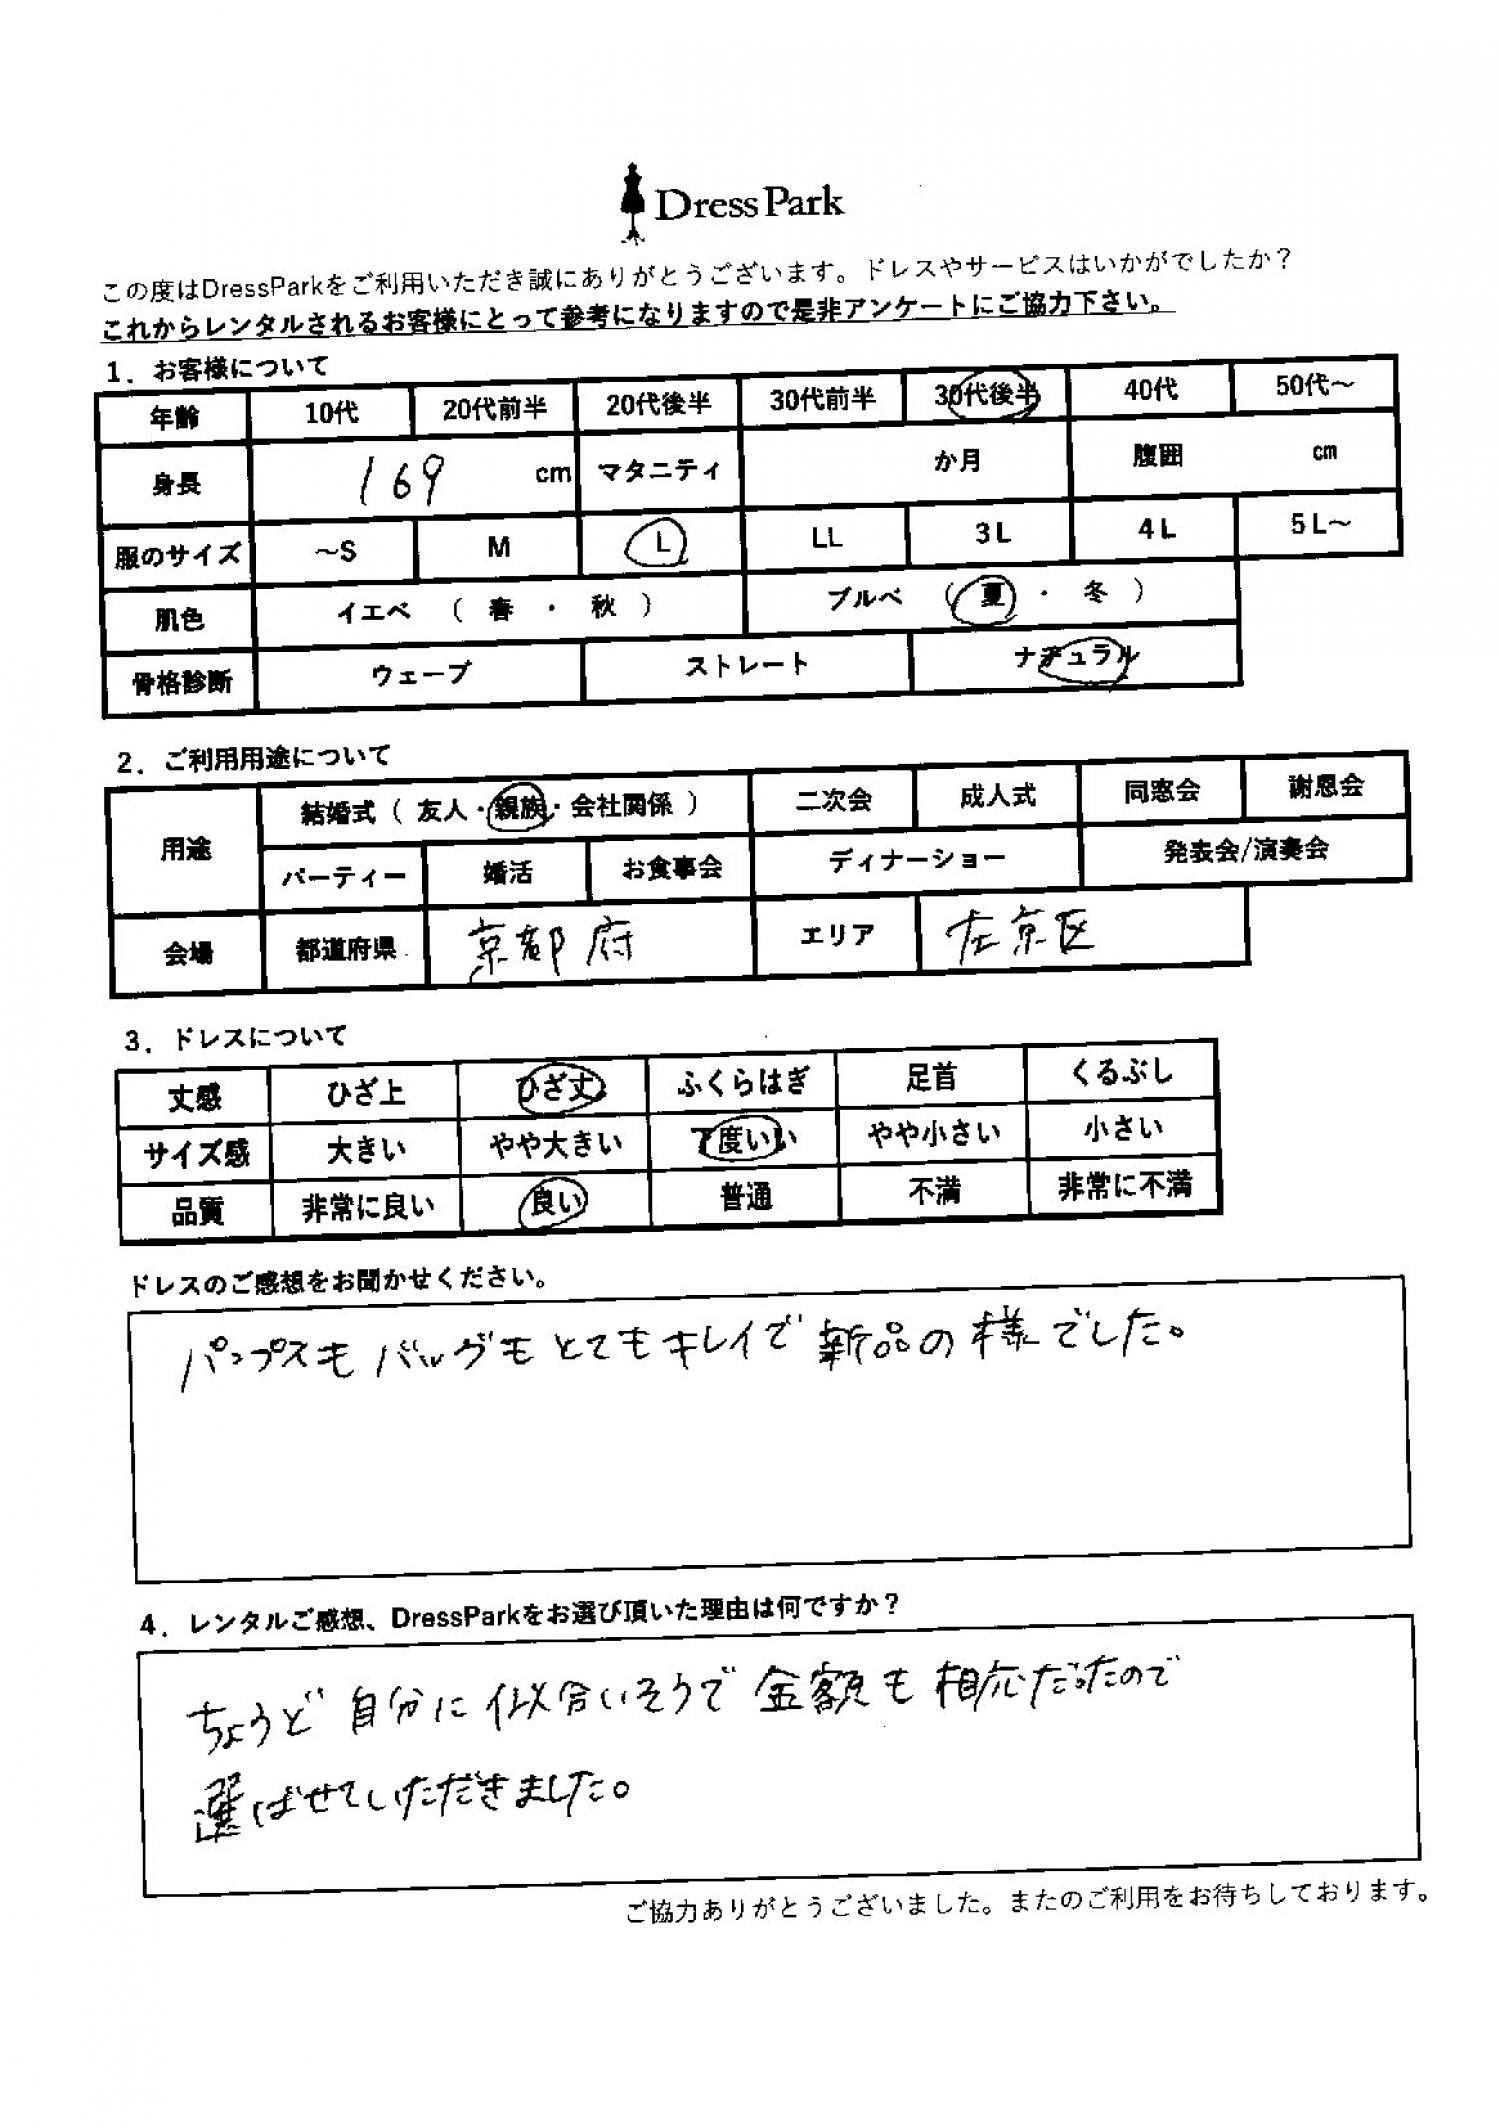 Dress Park
この度はDressParkをご利用いただき誠にありがとうございます。ドレスやサービスはいかがでしたか？
これからレンタルされるお客様にとって参考になりますので是非アンケートにご協力下さい。
1．お客様について
年齢 10代 20代前半 20代後半 30代前半 30代後半 40代 50代〜
身長 169 cm マタニティ か月 腹囲 cm
服のサイズ 〜S M L LL 3L 4L 5L〜
肌色 イエベ （ 春 ・ 秋 ） ブルベ （ 夏 ・ 冬 ）
骨格診断 ウェーブ ストレート ナチュラル
2．ご利用用途について
用途 結婚式（ 友人・親族・会社関係 ） 二次会 成人式 同窓会 謝恩会
パーティー 婚活 お食事会 ディナーショー 発表会/演奏会
会場 都道府県 京都府 エリア 左京区
3．ドレスについて
丈感 ひざ上 ひざ丈 ふくらはぎ 足首 くるぶし
サイズ感 大きい やや大きい 丁度いい やや小さい 小さい
品質 非常に良い 良い 普通 不満 非常に不満
ドレスのご感想をお聞かせください。
パンプスもバッグもとてもキレイで新品の様でした。
4．レンタルご感想、DressParkをお選び頂いた理由は何ですか？
ちょうど自分に似合いそうで金額も相応だったので
選ばせていただきました。
ご協力ありがとうございました。またのご利用をお待ちしております。